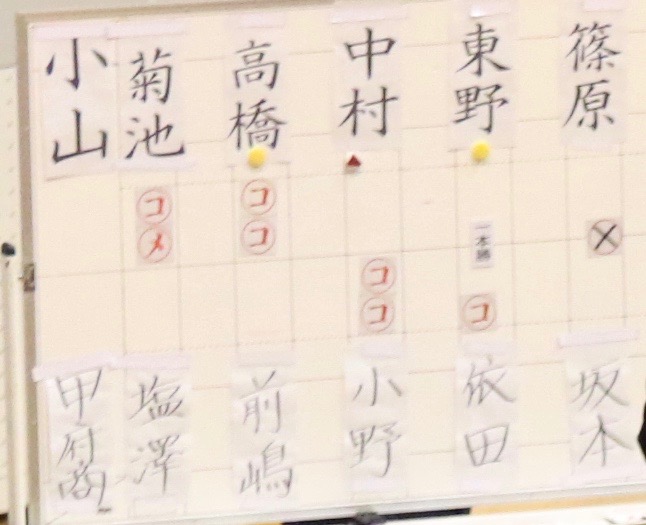 篠原
東野
中村
高橋
菊池
小山
コ
メ
コ
コ
一本勝
コ
コ
コ
坂本
依田
小野
前嶋
塩澤
甲府商